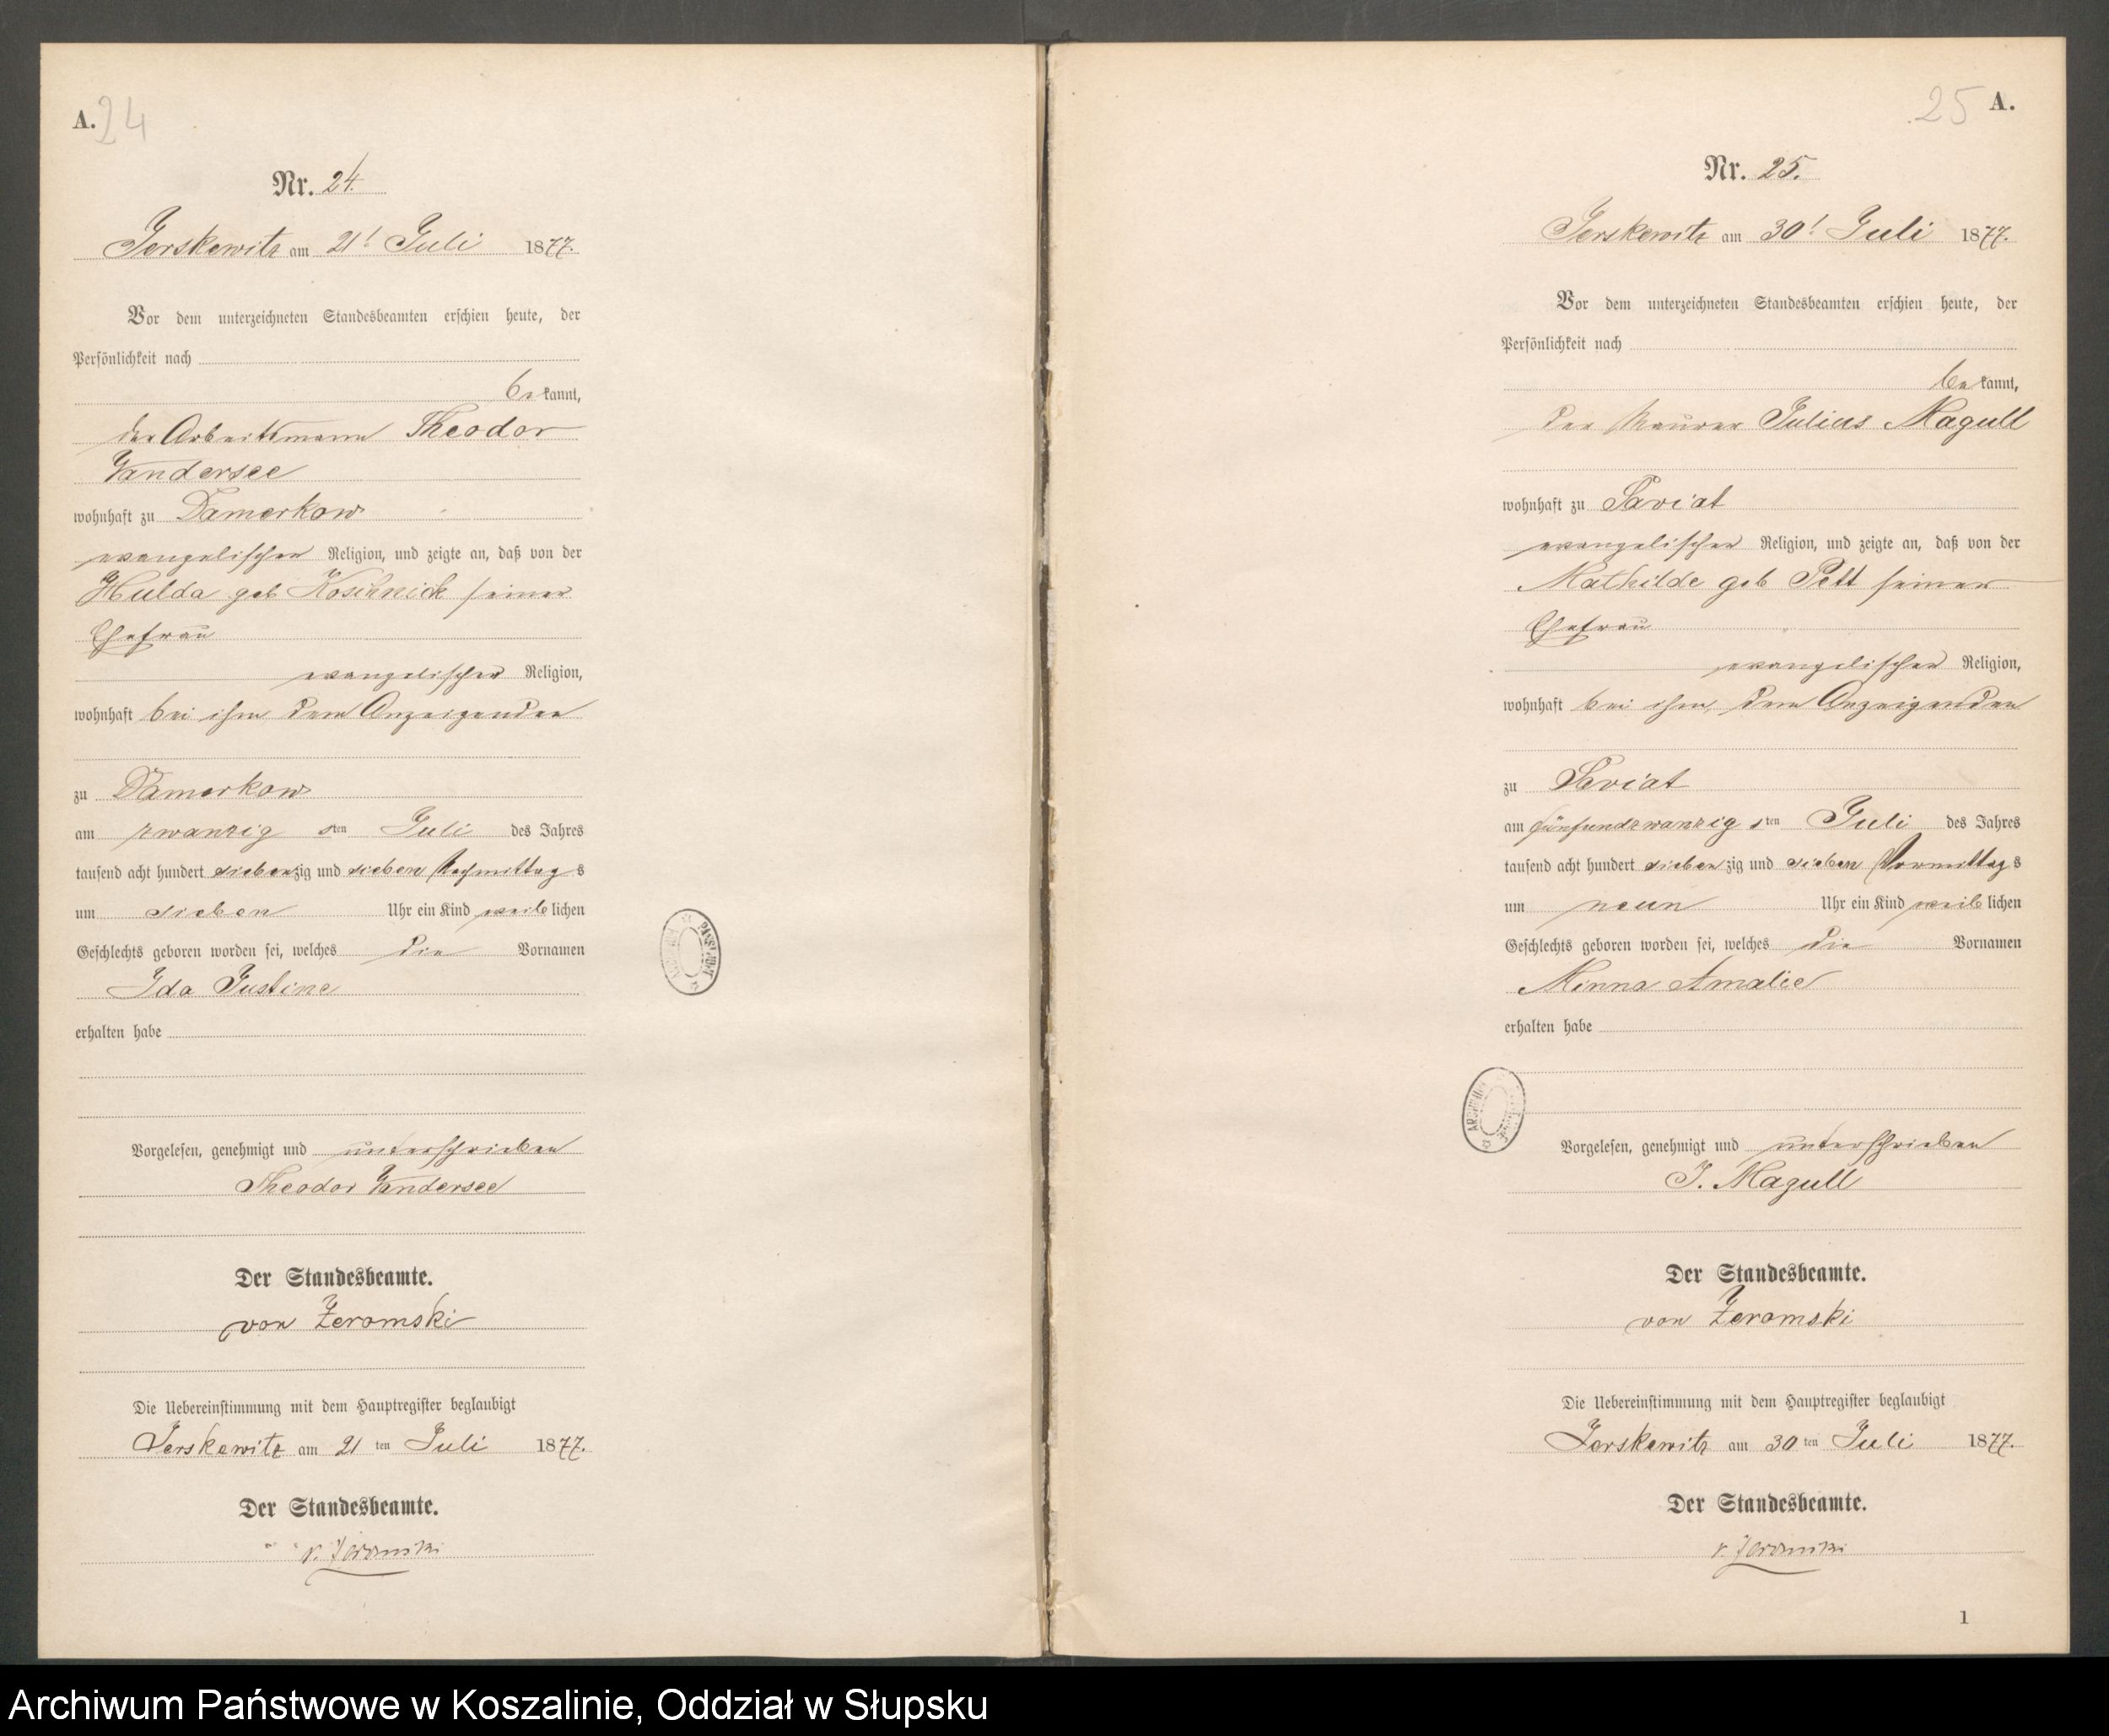 A. 24
Nr. 24.
Jerskewitz am 21t Juli 1877.
Vor dem unterzeichneten Standesbeamten erschien heute, der
Persönlichkeit nach
bekannt,
der Arbeitsmann Theodor
Vandersee
wohnhaft zu Damerkow
evangelischer Religion, und zeigte an, daß von der
Hulda geb Koschnick seiner
Ehefrau
evangelischer Religion,
wohnhaft bei ihm dem Anzeigenden
zu Damerkow
am zwanzig sten Juli des Jahres
tausend acht hundert siebenzig und sieben Nachmittags
um sieben Uhr ein Kind weiblichen
Geschlechts geboren worden sei, welches die Vornamen
Ida Justine
erhalten habe
Vorgelesen, genehmigt und unterschrieben
Theodor Vandersee
Der Standesbeamte.
von Zeromski
Die Uebereinstimmung mit dem Hauptregister beglaubigt
Jerskewitz am 21 ten Juli 1877.
Der Standesbeamte.
v. Zeromski
25 A.
Nr. 25.
Jerskewitz am 30t Juli 1877.
Vor dem unterzeichneten Standesbeamten erschien heute, der
Persönlichkeit nach
bekannt,
der Maurer Julius Magull
wohnhaft zu Saviat
evangelischer Religion, und zeigte an, daß von der
Mathilde geb Pett seiner
Ehefrau
evangelischer Religion,
wohnhaft bei ihm, dem Anzeigenden
zu Saviat
am fünfundzwanzig sten Juli des Jahres
tausend acht hundert siebenzig und sieben Vormittags
um neun Uhr ein Kind weiblichen
Geschlechts geboren worden sei, welches die Vornamen
Minna Amalie
erhalten habe
Vorgelesen, genehmigt und unterschrieben
J. Magull
Der Standesbeamte.
von Zeromski
Die Uebereinstimmung mit dem Hauptregister beglaubigt
Jerskewitz am 30 ten Juli 1877.
Der Standesbeamte.
v. Zeromski
1
Archiwum Państwowe w Koszalinie, Oddział w Słupsku